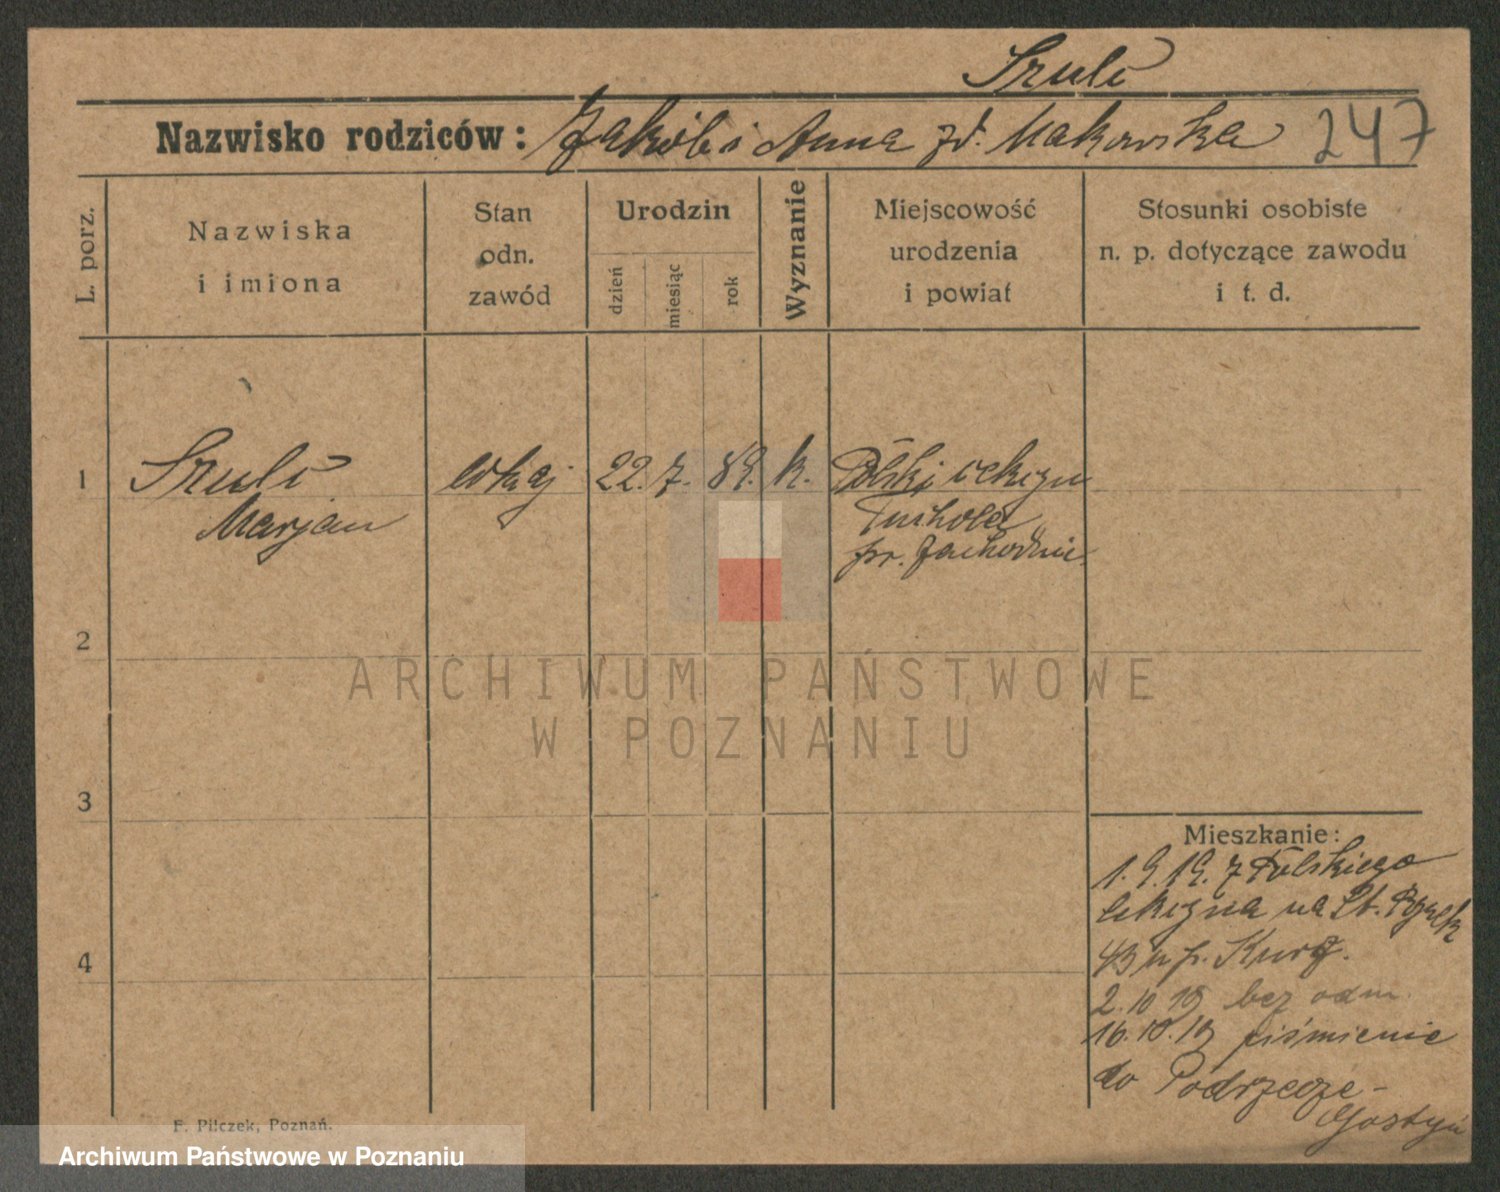 Szulc
Nazwisko rodziców: Jakób i Anna zd. Makowska 247
L. porz.
Nazwiska
i imiona
Stan
odn.
zawód
Urodzin
dzień
miesiąc
rok
Wyznanie
Miejscowość
urodzenia
i powiat
Stosunki osobiste
n. p. dotyczące zawodu
i t. d.
1 Szulc lokaj 22. 7. 89. k. Polski Cekcyn
Marjan Tuchola
pr. Zachodnie
2
3
4
Mieszkanie:
1.9.19. z Polskiego
Cekcyna na St. Rynek
43 u p. Kurz.
2.10 19 bez odm.
16.10.19 piśmienie
do Podrzecze-
Gostyń
F. Pilczek, Poznań.
ARCHIWUM PAŃSTWOWE
W POZNANIU
Archiwum Państwowe w Poznaniu